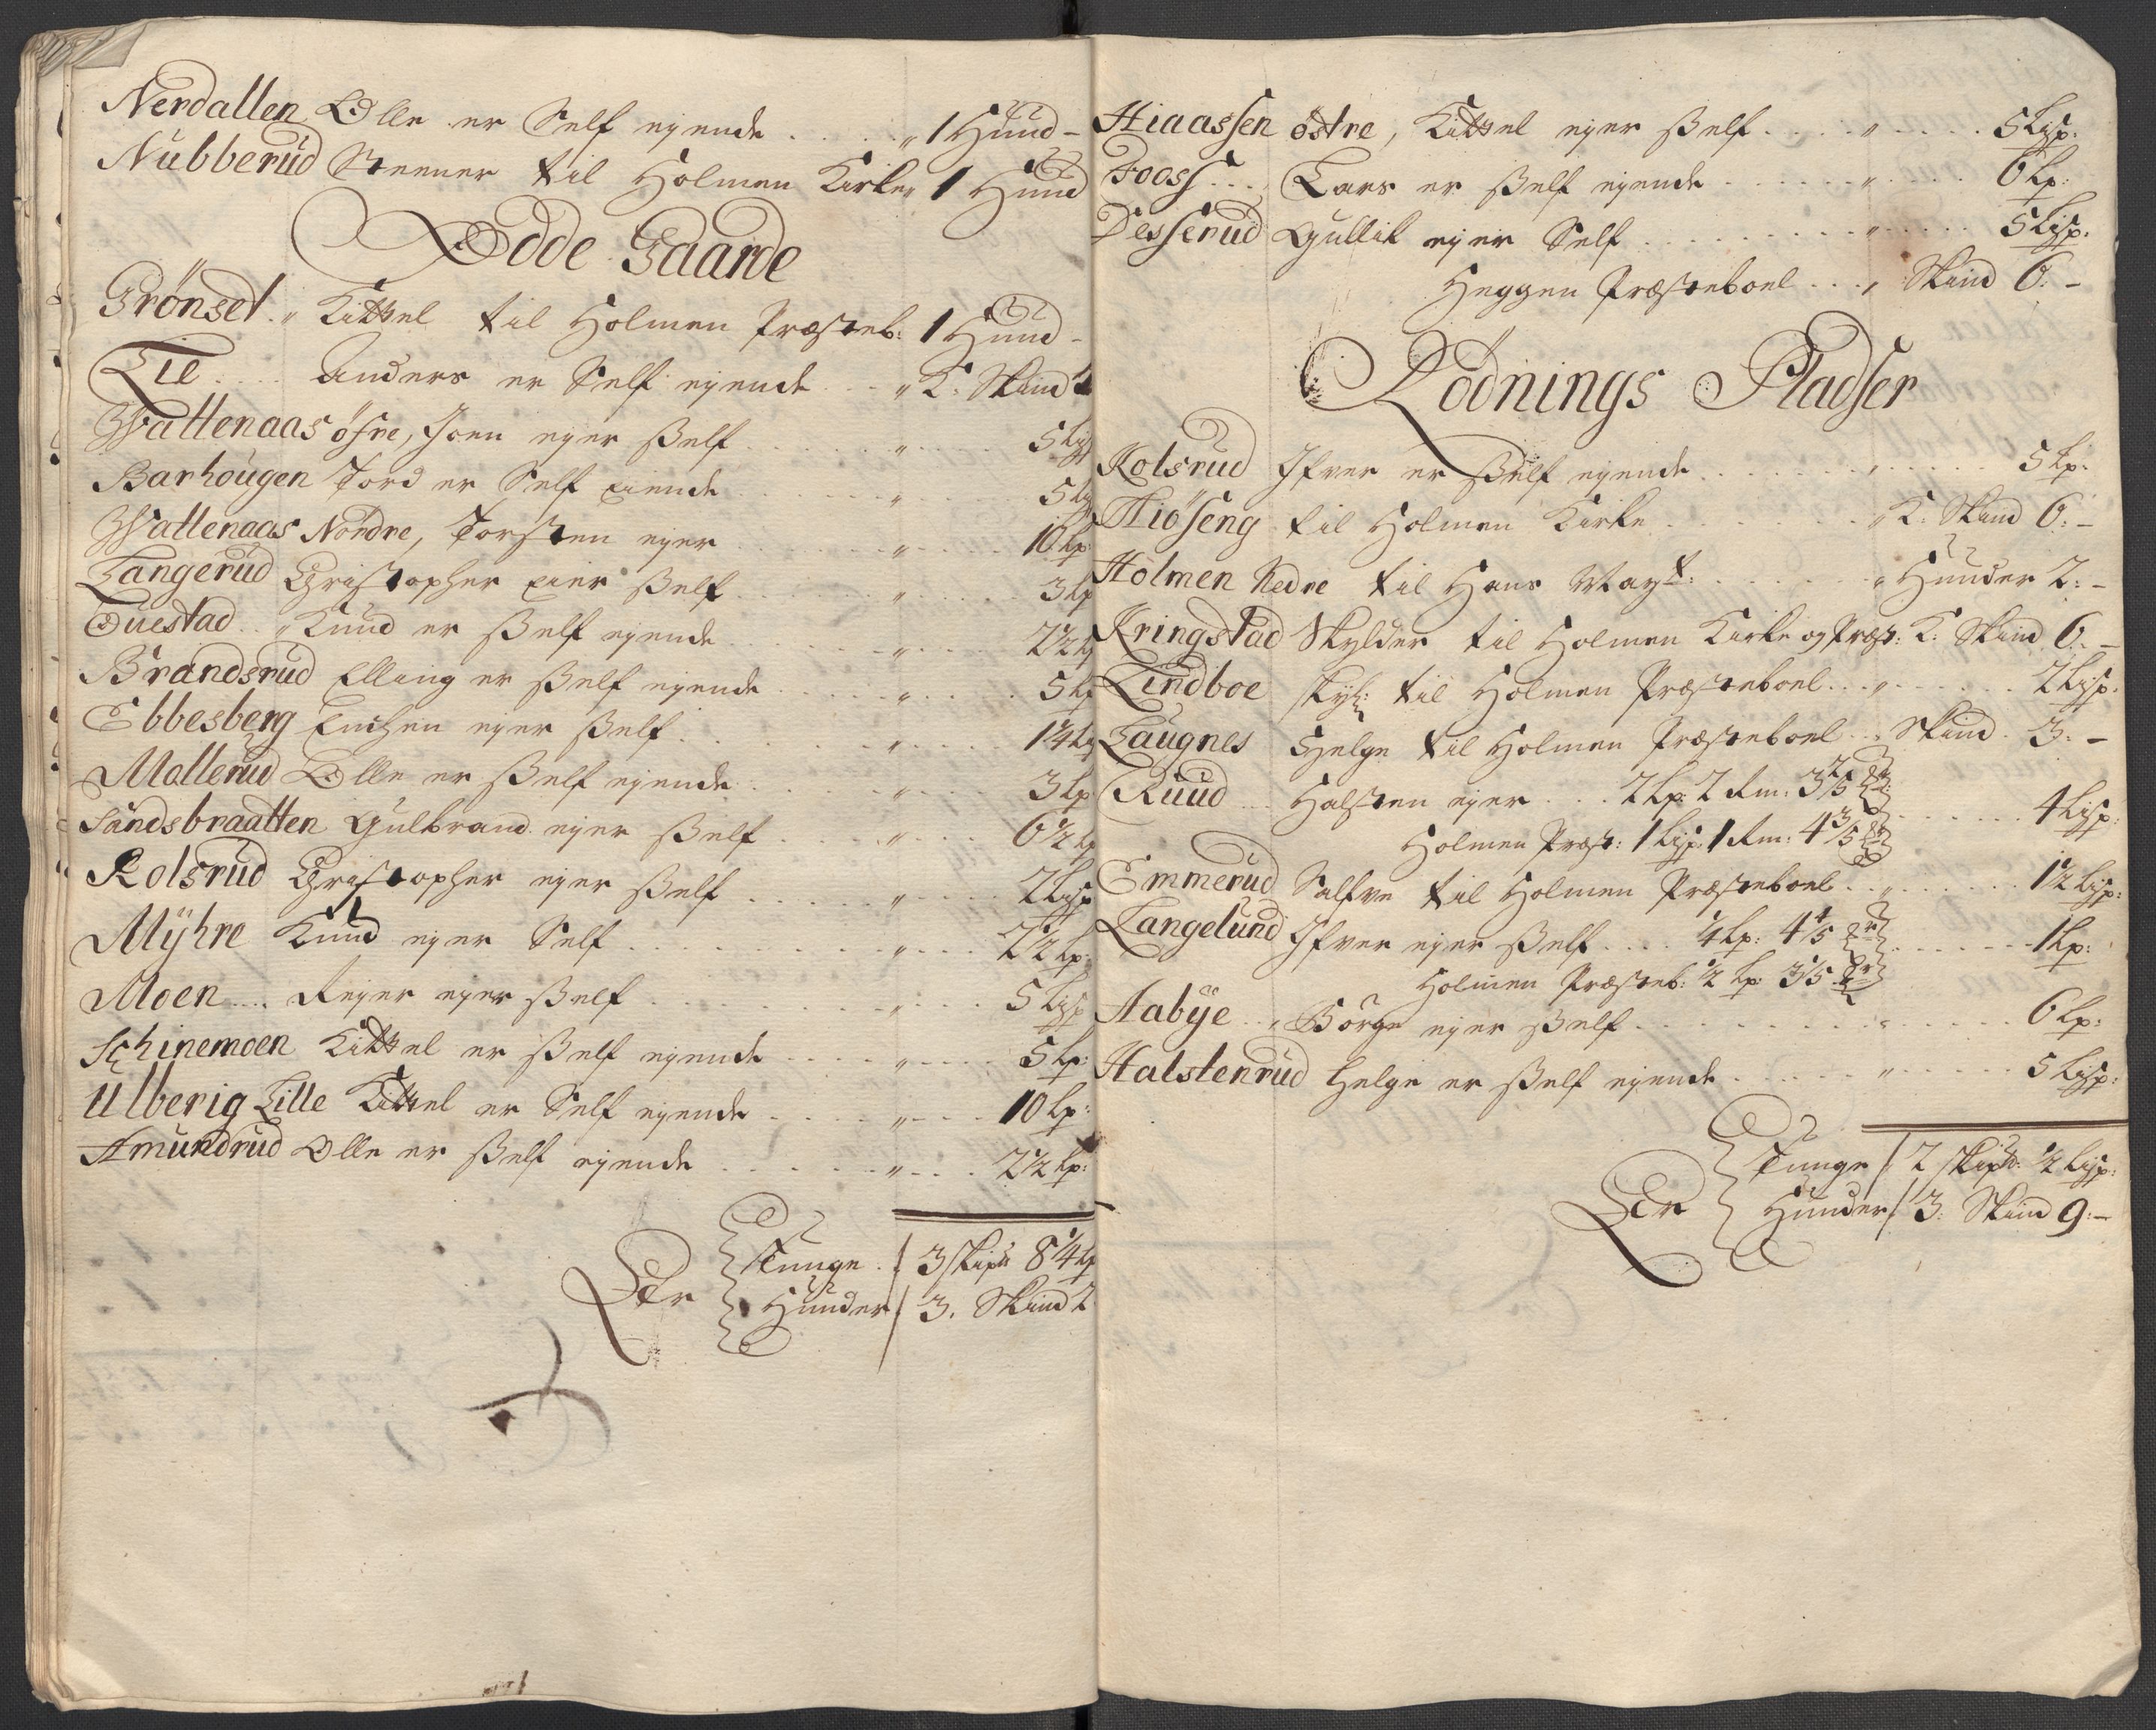 Nerdallen Olle er Self ejende . . . . . „ 1 Huud -
Nubberud Steener til Holmen Kirke „ 1 Huud
Ødde Gaarde
Grönset . „ Kittel til Holmen Præsteb: 1 Huud -
Lie . . . . Anders er Self ejende . . „ K: Skind
Wattenaas öfre, Joen ejer Self . . . . . „ . . . . 5 Lisp
Barhougen Tord er Self eiende . . . . „ . . . . 5 Lisp
Wattenaas Nordre, Torsten ejer . . . . „ . . . . 10 Lp
Langerud Christopher eier Self . . . . „ . . . . 3 Lp
Questad . . „ Knud er Self ejende . . . . „ . . . . 2½ Lp
Brandsrud Elling er Self ejende . . . . „ . . . . 5 Lp
Ebbesberg ejer Self . . . . . „ . . . . 1¼ Lp
Mallerud Olle er Self ejende . . . . „ . . . . 3 Lp
Sandsbraatten Gulbrand ejer Self . . . „ . . . 6½ Lp
Rolsrud Christopher ejer Self . . . . . „ . . . . 2 Lisp
Mÿhre Knud ejer Self . . . . . . . . „ . . . 2½ Lp:
Moen . . . . Rejer ejer Self . . . . . . „ . . . . 5 Lisp
Schinemoen Kittel er Self ejende . . . . „ . . . . 5 Lp:
Ulberig Lille Kittel er Self ejende . . . . „ . . . 10 Lp:
Amundrud Olle er Self ejende . . . . . „ . . . 2½ Lp:
Er Tunge . / 3 Skipd 8¼ Lp
Huuder / 3. Skind 2
Hiaassen östre, Kittel ejer Self . . . . „ . . . . 5 Lisp:
Fooss . . . Lars er Self ejende . . . . . . „ . . . . 6 Lp:
Desserud Gullik ejer Self . . . . . . . . „ . . . . 5 Lisp:
Heggen Præsteboel . . . „ Skind 6: -
Rödnings Pladser
Kolsrud Ifver er Self ejende . . . . . . „ . . . . . 5 Lp:
Hiöseng til Holmen Kirke . . . . . . . „ K: Skind 6: -
Holmen Nedre til Hans Mayt: . . . . . . „ Huuder 2: -
Kringstad Skylder til Holmen Kirke og Præst: K: Skind 6. -
Lindboe skyl: til Holmen Præsteboel . . „ . . . . . 2 Lisp:
Laugnes Helge til Holmen Præsteboel . . „ Skind . 3: -
Ruud . . . Halsten ejer . . . 2 Lp: 2 Rm: 3 2/5 . . . . . . 4 Lisp:
Holmen Præst: 1 Lisp: 1 Rm: 4 3/5
Emmerud Salfve til Holmen Præsteboel . . „ . . . . . 1½ Lisp:
Langelund Ifver ejer Self . . . . ¼ Lp: 4 4/5 . . . . . . 1 Lp:
Holmen Præsteb: ½ Lp: 3 1/5
Aabÿe . . „ Börge ejer Self . . . . . . . . „ . . . . . 6 Lp:
Halstenrud Helge er Self ejende . . . . . „ . . . . . 5 Lisp:
Er Tunge / 2 Skipd: ½ Lisp:
Huuder / 3: Skind 9: -